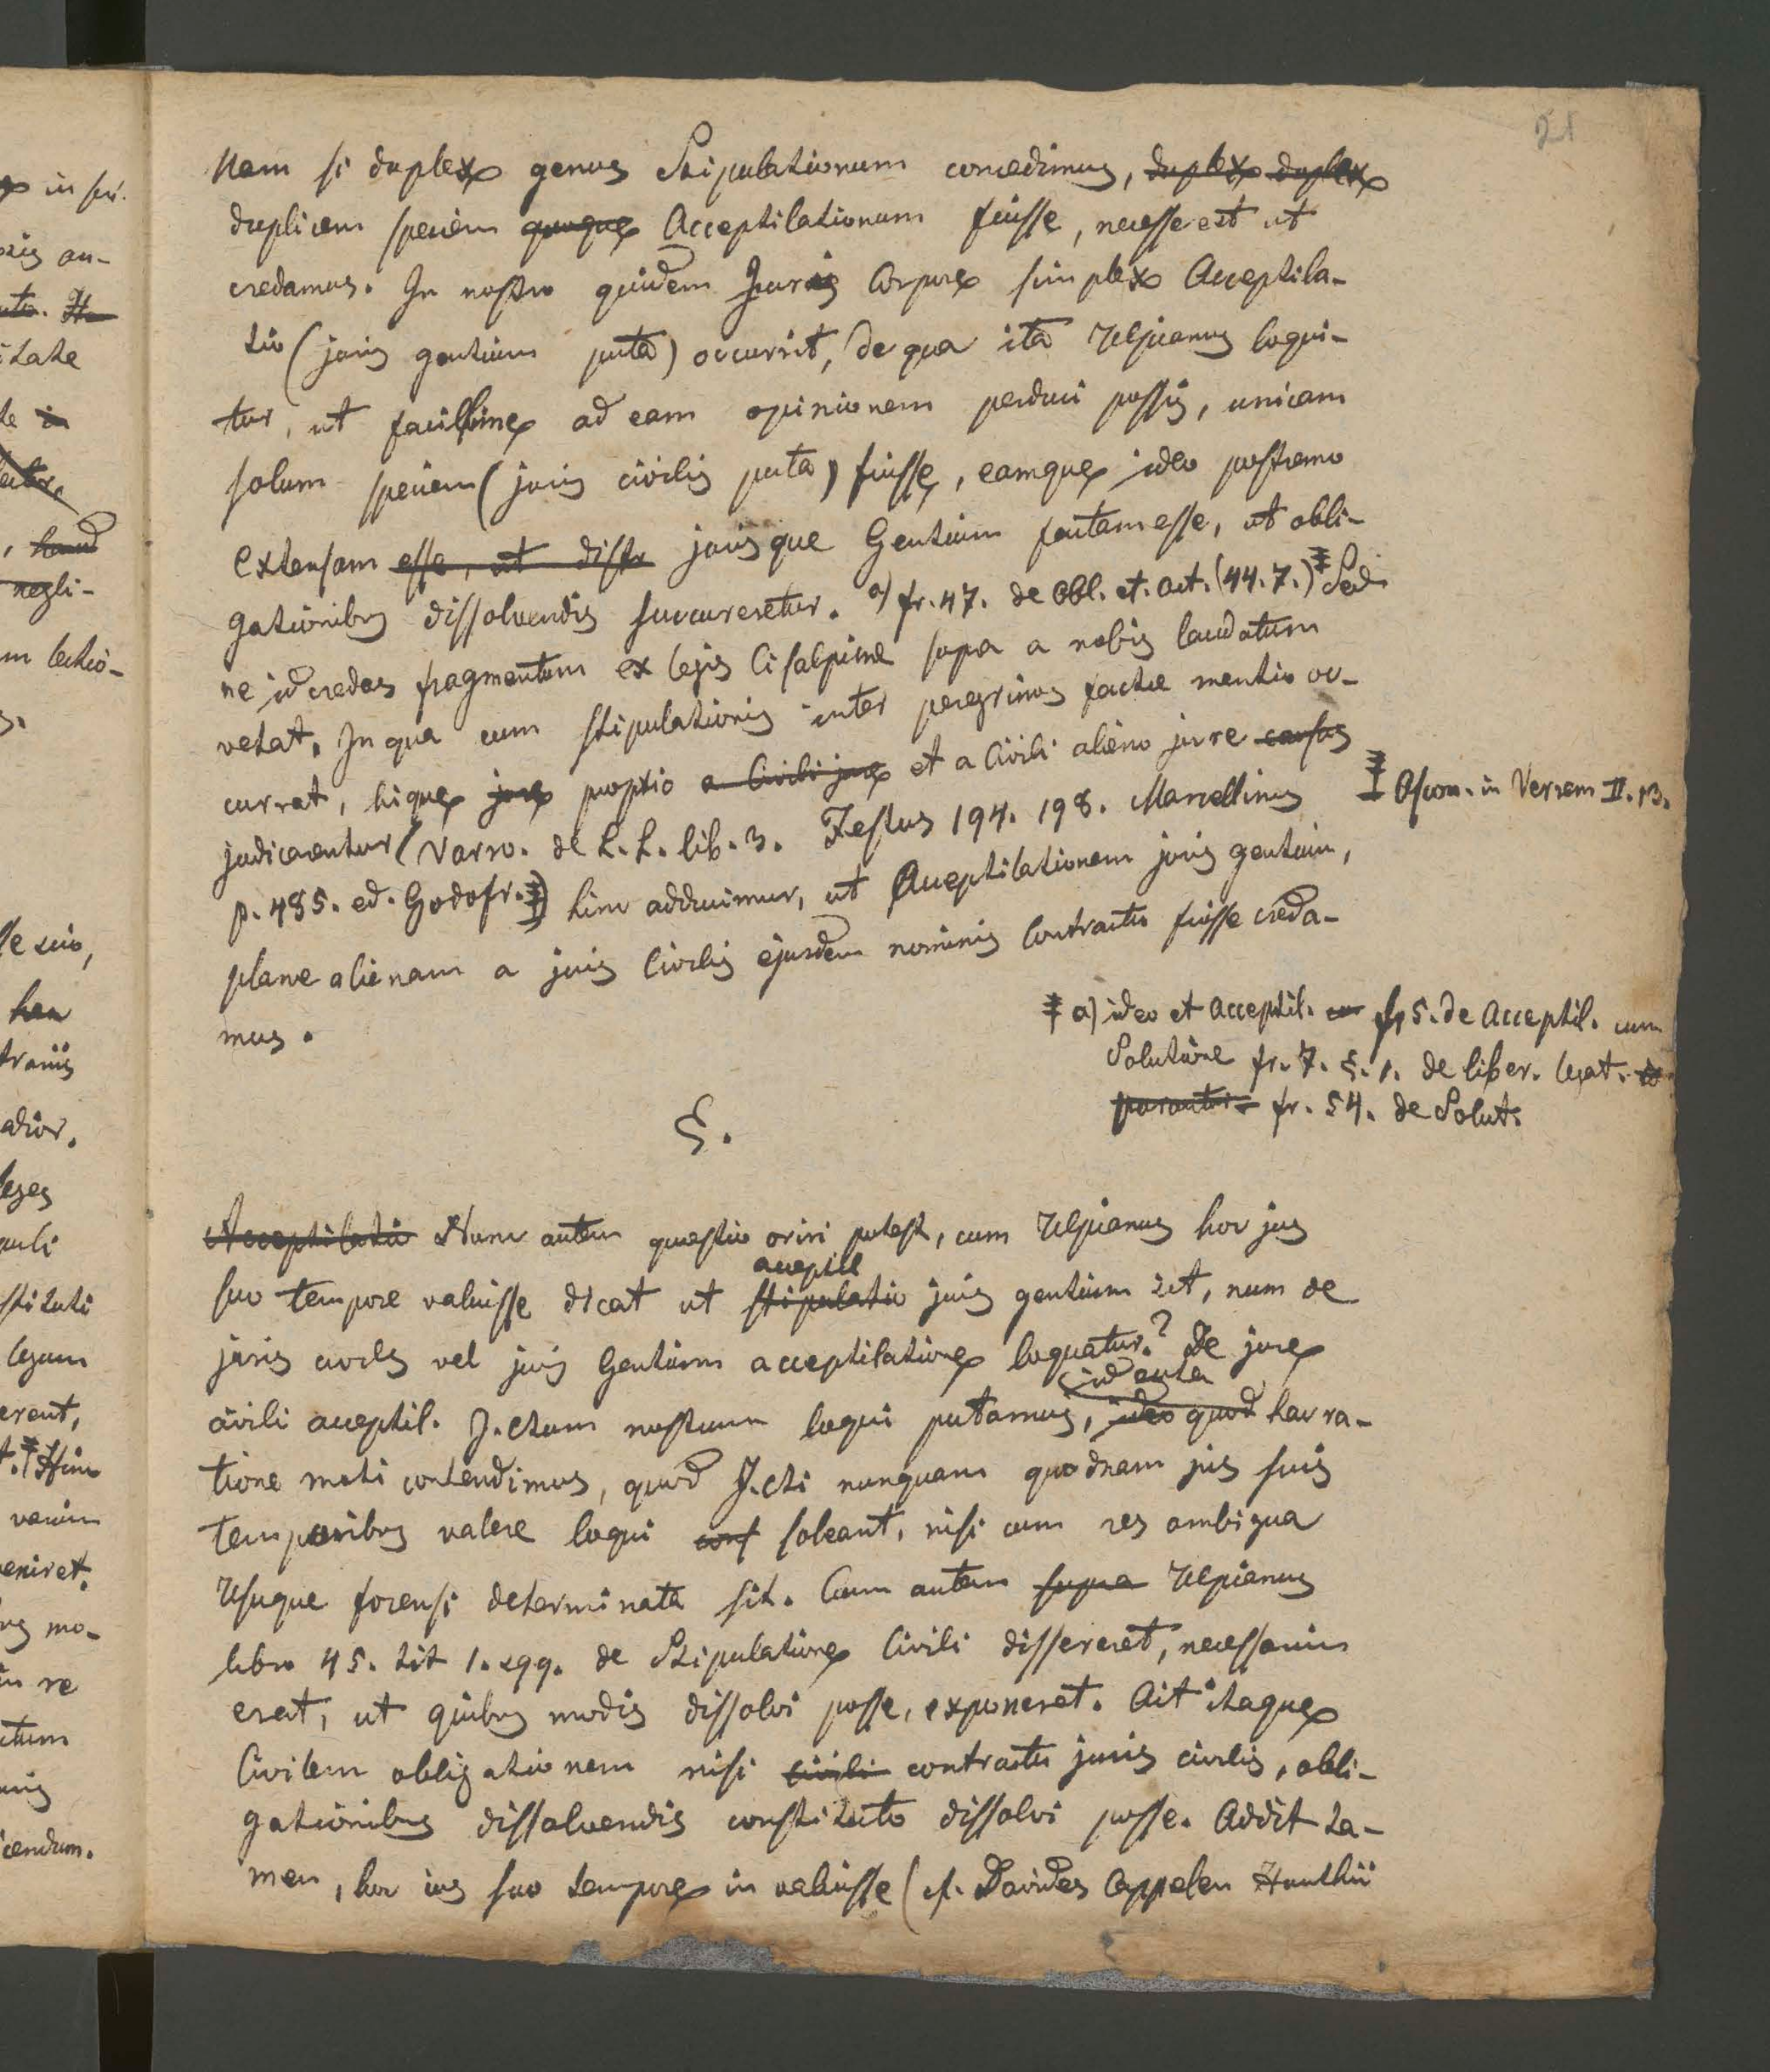 21
Nam si duplex genus Stipulationum concedimus, duplex duplex
duplicem speciem quoque Acceptilationum fuisse, necesse est ut
credamus. In nostro quidem Juris Corpore simplex Acceptila-
tio (juris gentium puta) occurrit, de qua ita Ulpianus loqui-
tur, ut facillime ad eam opinionem perduci possis, unicam
solum speciem (juris civilis puta) fuisse, eamque ideo postremo
extensam esse, ut distr jurisque Gentium factam esse, ut obli-
gationibus dissolvendis succureretur. a) fr. 47. de Obl. et. act. (44. 7.) ‡ Sed
ne id credas fragmentum ex legis Cisalpinae supra a nobis laudatum
vetat. In qua cum stipulationis inter peregrinos factae mentio oc-
currat, hique jure proprio a Civili jure et a Civili alieno jure
judicarentur (Varro. de L. L. lib. 3. Festus 194. 198. Marcellinus
‡ Ascon. in Verrem II. 13.
p. 485. ed. Godofr. ‡) hinc adducimur, ut Acceptilationem juris gentium,
plane alienam a juris Civilis ejusdem nominis Contractu fuisse creda-
mus.
‡ a) ideo et Acceptil. fr 5. de Acceptil. cum
Solutione fr. 7. §. 1. de liber. legat.
parantur fr. 54. de Solut.
§.
Acceptilatio Nunc autem quaestio oriri potest, cum Ulpianus hoc jus
acceptil
suo tempore valuisse dicat ut stipulatio juris gentium sit, num de
juris civilis vel juris Gentium acceptilatione loquatur? De jure
id autem
civili acceptil. J.ctum nostrum loqui putamus, ideo quod hac ra-
tione moti contendimus, quod J.cti nunquam quodnam jus suis
temporibus valere loqui conf soleant, nisi cum res ambigua
Usuque forensi determinata sit. Cum autem supra Ulpianus
libro 45. tit 1. sqq. de Stipulatione Civili dissereret, necessarium
erat, ut quibus modis dissolvi posse, exponeret. Ait itaque
Civilem obligationem nisi civili contractu juris civilis, obli-
gationibus dissolvendis constituto dissolvi posse. Addit ta-
men, hoc ius suo tempore in valuisse (cf. Davides Cappelen